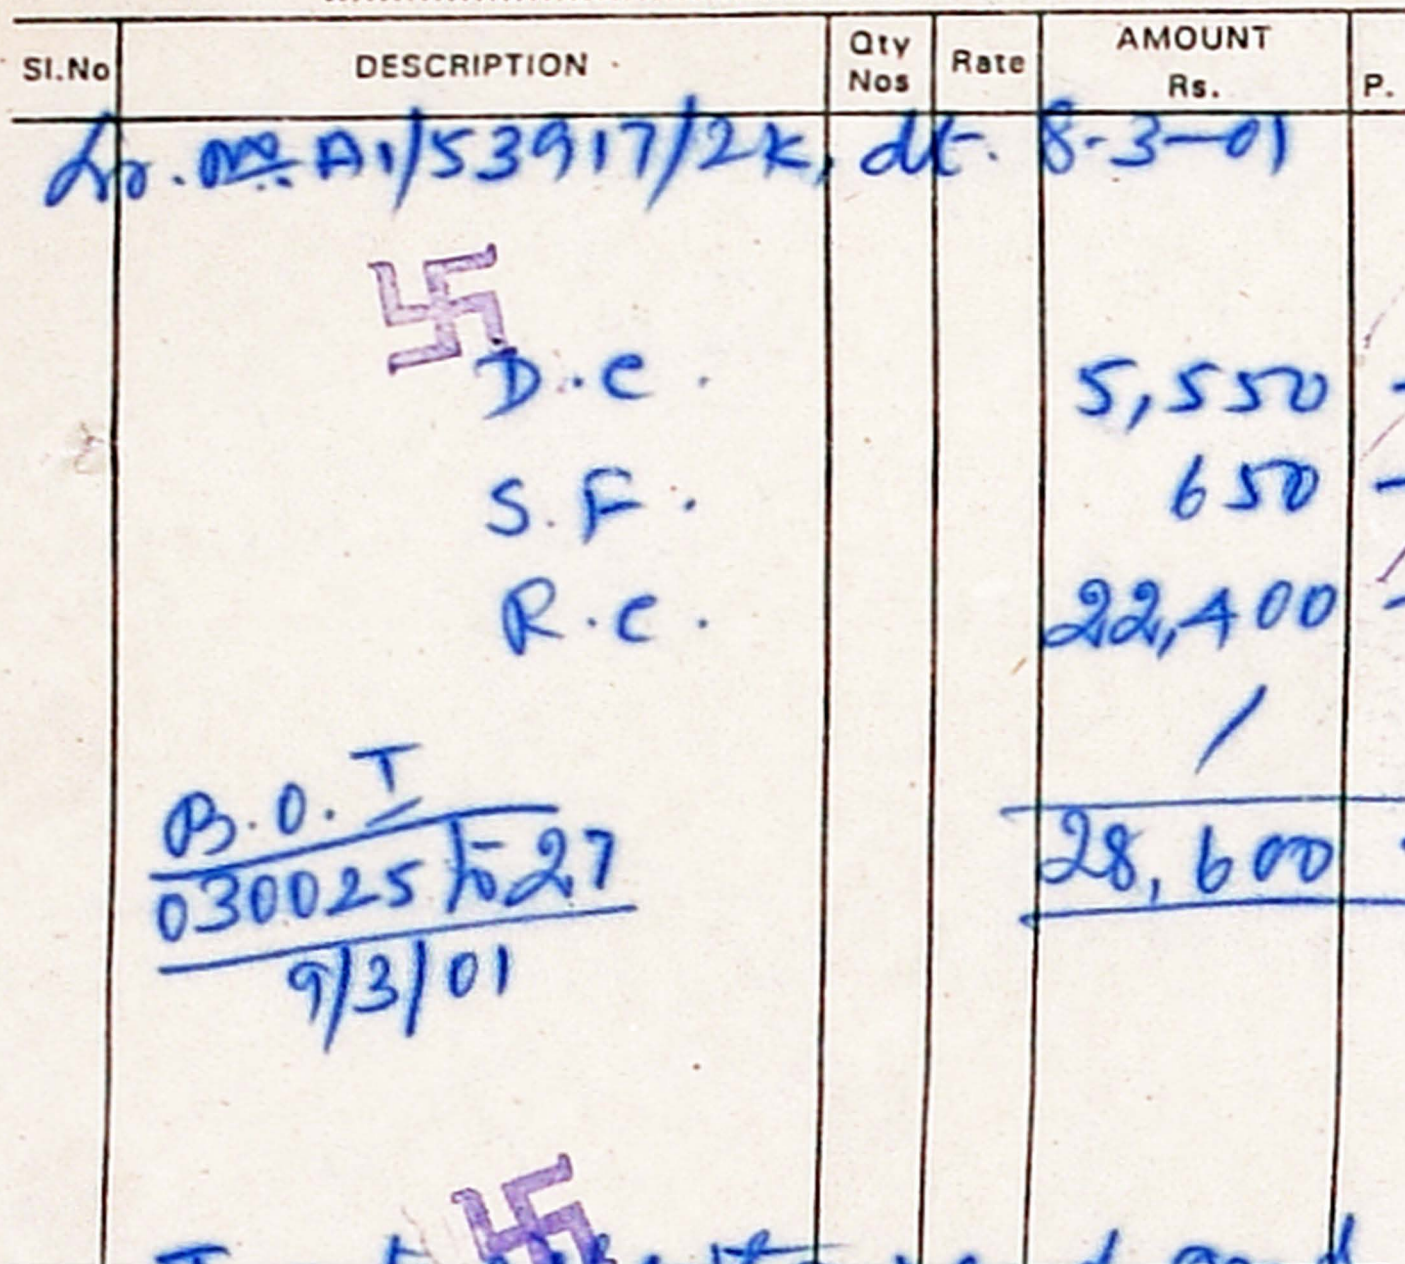 Sl.No DESCRIPTION Qty Nos Rate AMOUNT Rs. P.
Lr. No. A1/53917/2K, dt. 8-3-01
D.C. 5,550 -
S.F. 650 -
R.C. 22,400 -
/
B.O.I
28,600
030025 to 27
9/3/01